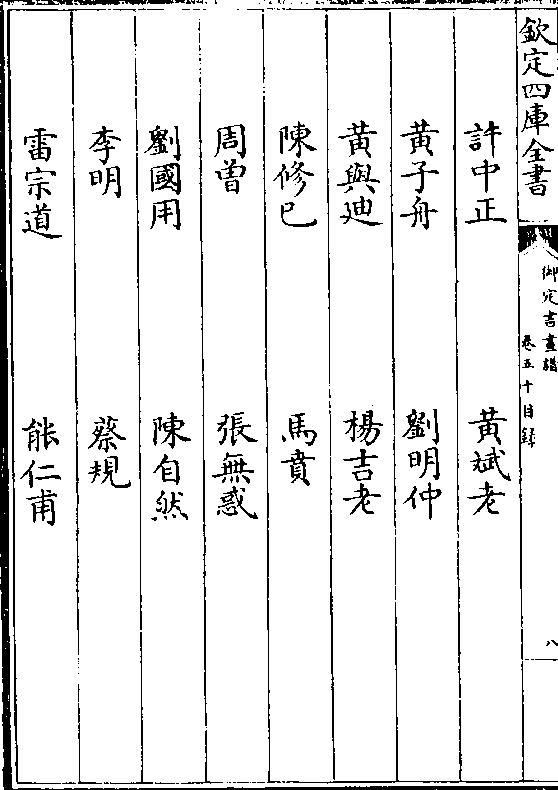 欽定四庫全書
御定書畫譜
卷五十目録
八
許中正 黄斌老
黄子舟 劉明仲
黄與廸 楊吉老
陳修巳 馬賁
周曾 張無惑
劉國用 陳自然
李明 蔡規
雷宗道 熊仁甫